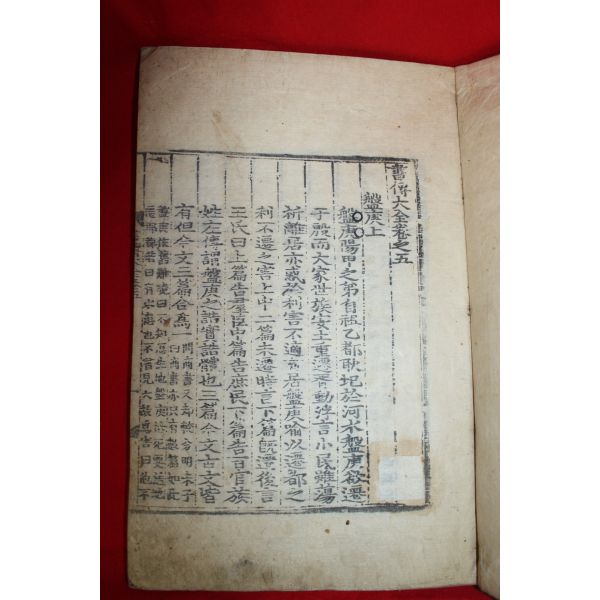 書傳大全卷之五
盤庚上
盤庚陽甲之弟自祖乙都耿圮於河水盤庚欲遷
于殷而大家世族安土重遷胥動浮言小民雖蕩
析離居亦惑於利害不適有居盤庚喻以遷都之
利不遷之害上中二篇未遷時言下篇旣遷後言
王氏曰上篇告羣臣中篇告庶民下篇告百官族
姓左傳謂盤庚之誥實誥體也三篇今文古文皆
有但今文三篇合爲一